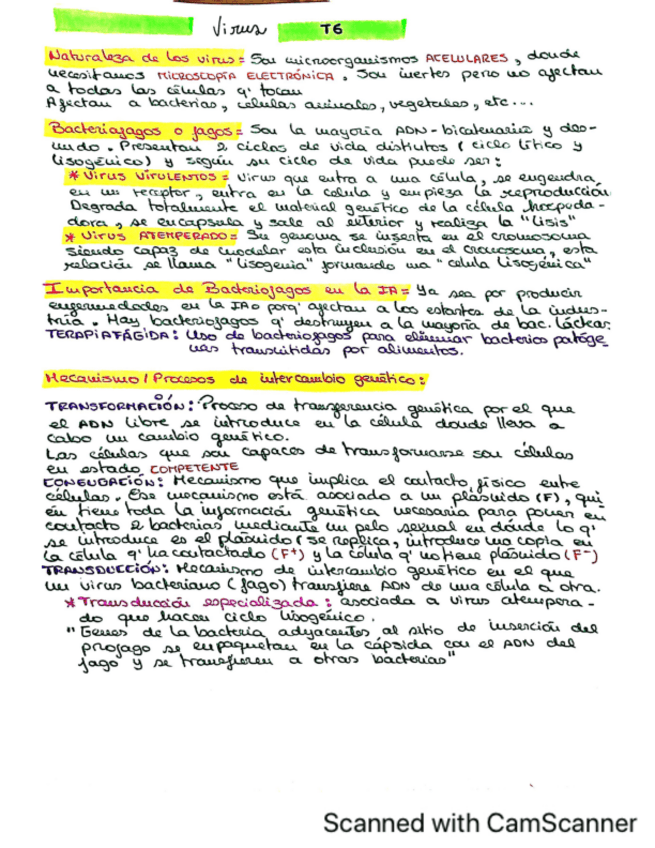 Virus T6
Naturaleza de los virus = Son microorganismos ACELULARES, donde
necesitamos MICROSCOPÍA ELECTRÓNICA. Son inertes pero no afectan
a todas las células q' tocan
Afectan a bacterias, células animales, vegetales, etc...
Bacteriofagos o fagos = Son la mayoría ADN-bicatenario y des-
nudo. Presentan 2 ciclos de vida distintos (ciclo lítico y
lisogénico) y según su ciclo de vida puede ser:
* Virus VIRULENTOS = Virus que entra a una célula, se engendra
en un receptor, entra en la celula y empieza la reproducción
Degrada totalmente el material genético de la célula hospeda-
dora, se encapsula y sale al exterior y realiza la "lisis"
* Virus ATEMPERADO = Su genoma se inserta en el cromosoma
siendo capaz de modelar esta inclusión en el cromosoma, esta
relación se llama "lisogenia" formando una "celula lisogénica"
Importancia de Bacteriofagos en la IA = Ya sea por producir
enfermedades en la IA o porq' afectan a los estartes de la indus-
tria. Hay bacteriofagos q' destruyen a la mayoría de bac. lácticas.
TERAPIA FÁGIDA: Uso de bacteriofagos para eliminar bacterias patóge
nas transmitidas por alimentos.
Mecanismo / Procesos de intercambio genético:
TRANSFORMACIÓN: Proceso de transferencia genética por el que
el ADN libre se introduce en la célula donde lleva a
cabo un cambio genético.
Las células que son capaces de transformarse son células
en estado COMPETENTE
CONGUGACIÓN: Mecanismo que implica el contacto físico entre
células. Ese mecanismo está asociado a un plásmido (F), qui
én tiene toda la información genética necesaria para poner en
contacto 2 bacterias mediante un pelo sexual en donde lo q'
se introduce es el plásmido (se replica, introduce una copia en
la célula q' ha contactado (F+) y la célula q' no tiene plásmido (F-)
TRANSDUCCIÓN: Mecanismo de intercambio genético en el que
un virus bacteriano (fago) transfiere ADN de una célula a otra.
* Transducción especializada: asociada a virus atempera-
do que hacen ciclo lisogénico.
"Genes de la bacteria adyacentes al sitio de inserción del
profago se empaquetan en la cápsida con el ADN del
fago y se transfieren a otras bacterias"
Scanned with CamScanner